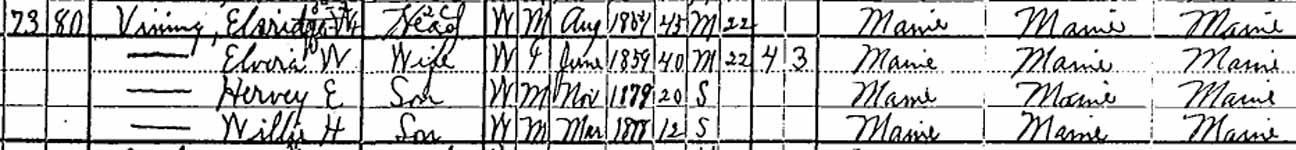 73 80 Vining, Elbridge W Head W M Aug 1854 45 M 22 Maine Maine Maine
— Elvira W Wife W F June 1859 40 M 22 4 3 Maine Maine Maine
— Hervey E Son W M Nov 1879 20 S Maine Maine Maine
— Willie H Son W M Mar 12 S Maine Maine Maine